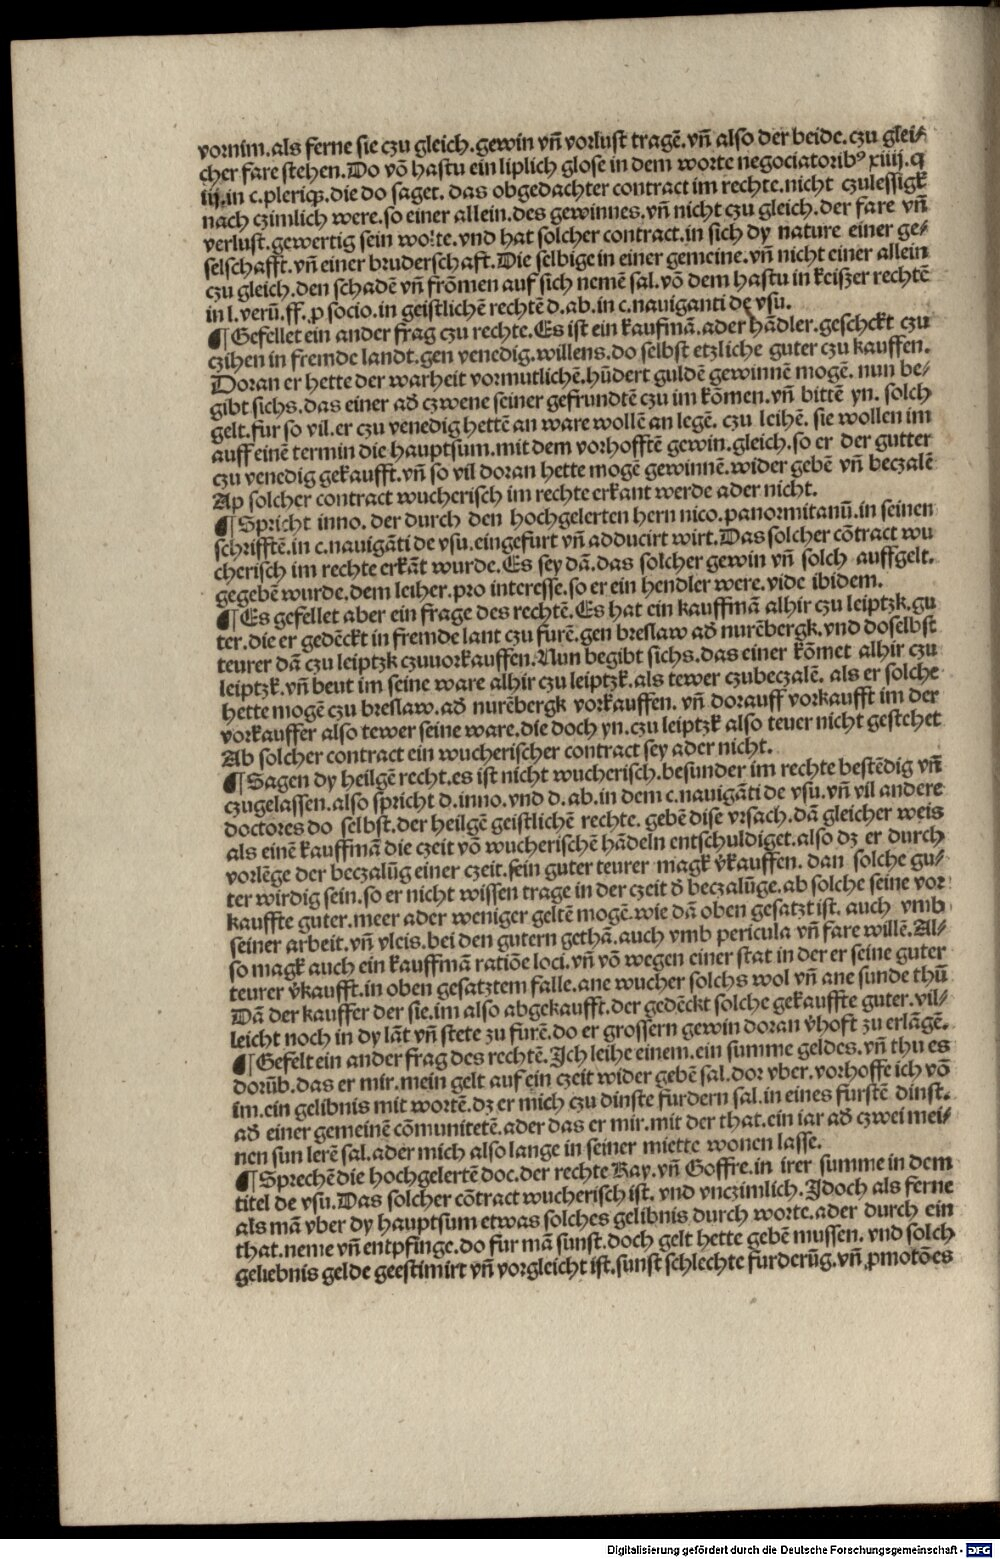 vornim.als ferne sie czu gleich.gewin vñ vorlust tragē.vñ also der beide.czu glei⸗
cher fare stehen.Do võ hastu ein liplich glose in dem worte negociatoribꝰ xiiij.q
iij.in c.pleriqꝫ.die do saget. das obgedachter contract im rechte.nicht czulessigk
nach czimlich were.so einer allein.des gewinnes.vñ nicht czu gleich.der fare vñ
verlust.gewertig sein wolte.vnd hat solcher contract.in sich dy nature einer ge⸗
selschafft.vñ einer bruderschaft.Die selbige in einer gemeine.vñ nicht einer allein
czu gleich.den schadē vñ frõmen auf sich nemē sal.võ dem hastu in keiszer rechtē
in l.verū.ff.ꝓ socio.in geistlichē rechtē d.ab.in c.nauiganti de vsu.
¶Gefellet ein ander frag czu rechte.Es ist ein kaufmā.ader hādler.geschckt czu
czihen in fremde landt.gen venedig.willens.do selbst etzliche guter czu kauffen.
Doran er hette der warheit vormutlichē.hūdert guldē gewinnē mogē. nun be⸗
gibt sichs.das einer ad̄ czwene seiner gefrundtē czu im kõmen.vñ bittē yn. solch
gelt.fur so vil.er czu venedig hettē an ware wollē an legē. czu leihē. sie wollen im
auff einē termin die hauptsum.mit dem vorhofftē gewin.gleich.so er der gutter
czu venedig gekaufft.vñ so vil doran hette mogē gewinnē.wider gebē vñ beczalē
Ap solcher contract wucherisch im rechte erkant werde ader nicht.
¶Spricht inno. der durch den hochgelerten hern nico.panormitanū.in seinen
schrifftē.in c.nauigāti de vsu.eingefurt vñ adducirt wirt.Das solcher cõtract wu
cherisch im rechte erkāt wurde.Es sey dā.das solcher gewin vñ solch auffgelt.
gegebē wurde.dem leiher.pro interesse.so er ein hendler were.vide ibidem.
¶Es gefellet aber ein frage des rechtē.Es hat ein kauffmā alhir czu leiptzk.gu
ter.die er gedēckt in fremde lant czu furē.gen breslaw ad̄ nurēbergk.vnd doselbst
teurer dā czu leiptzk czuuorkauffen.Nun begibt sichs.das einer kõmet alhir czu
leiptzk.vñ beut im seine ware alhir czu leiptzk.als tewer czubeczalē. als er solche
hette mogē czu breslaw.ad̄ nurēbergk vorkauffen. vñ dorauff vorkaufft im der
vorkauffer also tewer seine ware.die doch yn.czu leiptzk also teuer nicht gestehet
Ab solcher contract ein wucherischer contract sey ader nicht.
¶Sagen dy heilgē recht.es ist nicht wucherisch.besunder im rechte bestēdig vñ
czugelassen.also spricht d.inno.vnd d.ab.in dem c.nauigāti de vsu.vñ vil andere
doctores do selbst.der heilgē geistlichē rechte. gebē dise vrsach.dā gleicher weis
als einē kauffmā die czeit võ wucherischē hādeln entschuldiget.also dz er durch
vorlēge der beczalūg einer czeit.sein guter teurer magk v̄kauffen. dan solche gu⸗
ter wirdig sein.so er nicht wissen trage in der czeit d̄ beczalūge.ab solche seine vor
kauffte guter.meer ader weniger geltē mogē.wie dā oben gesatzt ist. auch vmb
seiner arbeit.vñ vleis.bei den gutern gethā.auch vmb pericula vñ fare willē.Al⸗
so magk auch ein kauffmā ratiõe loci.vñ võ wegen einer stat in der er seine guter
teurer v̄kaufft.in oben gesatztem falle.ane wucher solchs wol vñ ane sunde thū
Dā der kauffer der sie.im also abgekaufft.der gedēckt solche gekauffte guter.vil⸗
leicht noch in dy lāt vñ stete zu furē.do er grossern gewin doran v̄hoft zu erlāgē.
¶Gefelt ein ander frag des rechtē.Ich leihe einem.ein summe geldes.vñ thu es
dorūb.das er mir.mein gelt auf ein czeit wider gebē sal.dor vber.vorhoffe ich võ
im.ein gelibnis mit wortē.dz er mich czu dinste furdern sal.in eines furstē dinst.
ad̄ einer gemeinē cõmunitetē.ader das er mir.mit der that.ein iar ad̄ czwei mei⸗
nen sun lerē sal.ader mich also lange in seiner miette wonen lasse.
¶Sprechē die hochgelertē doc.der rechte Ray.vñ Goffre.in irer summe in dem
titel de vsu.Das solcher cõtract wucherisch ist. vnd vnczimlich.Idoch als ferne
als mā vber dy hauptsum etwas solches gelibnis durch worte.ader durch ein
that.neme vñ entpfinge.do fur mā sunst.doch gelt hette gebē mussen. vnd solch
geliebnis gelde geestimirt vñ vorgleicht ist.sunst schlechte furderūg.vñ ꝓmotões
Digitalisierung gefördert durch die Deutsche Forschungsgemeinschaft - DFG